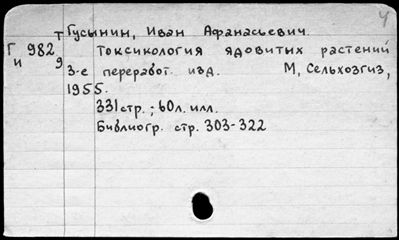 Ч
Т Гусынин, Иван Афанасьевич.
Г 982 Токсикология ядовитых растений
и 9 3-е переработ. изд. М, Сельхозгиз,
1955.
331 стр.; 60 л. илл.
Библиогр. стр. 303-322